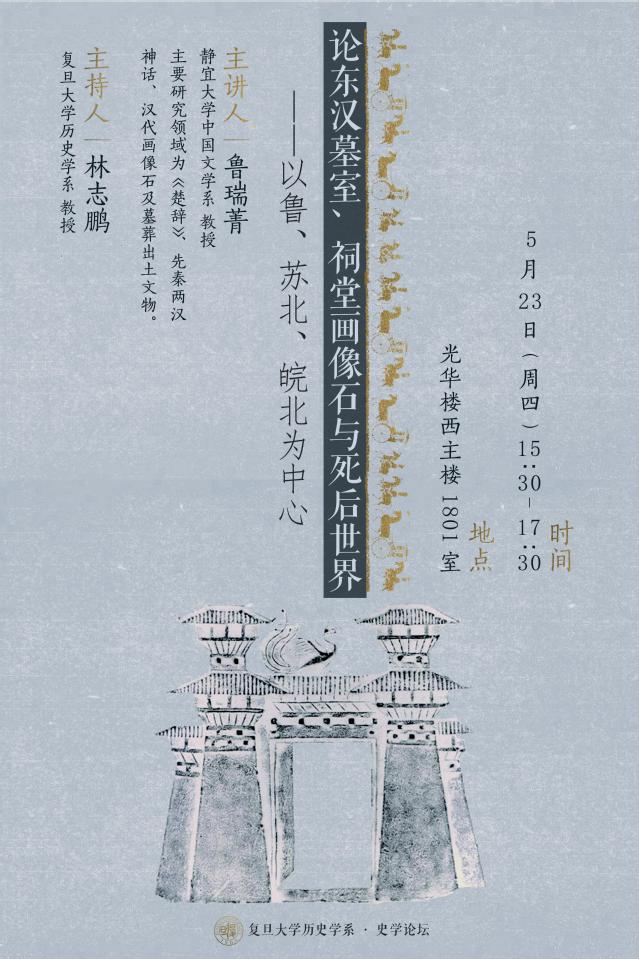 时间
5月23日（周四）15:30-17:30
地点
光华楼西主楼1801室
论东汉墓室、祠堂画像石与死后世界
——以鲁、苏北、皖北为中心
主讲人｜鲁瑞菁
静宜大学中国文学系 教授
主要研究领域为《楚辞》、先秦两汉
神话、汉代画像石及墓葬出土文物。
主持人｜林志鹏
复旦大学历史学系 教授
复旦大学历史学系·史学论坛